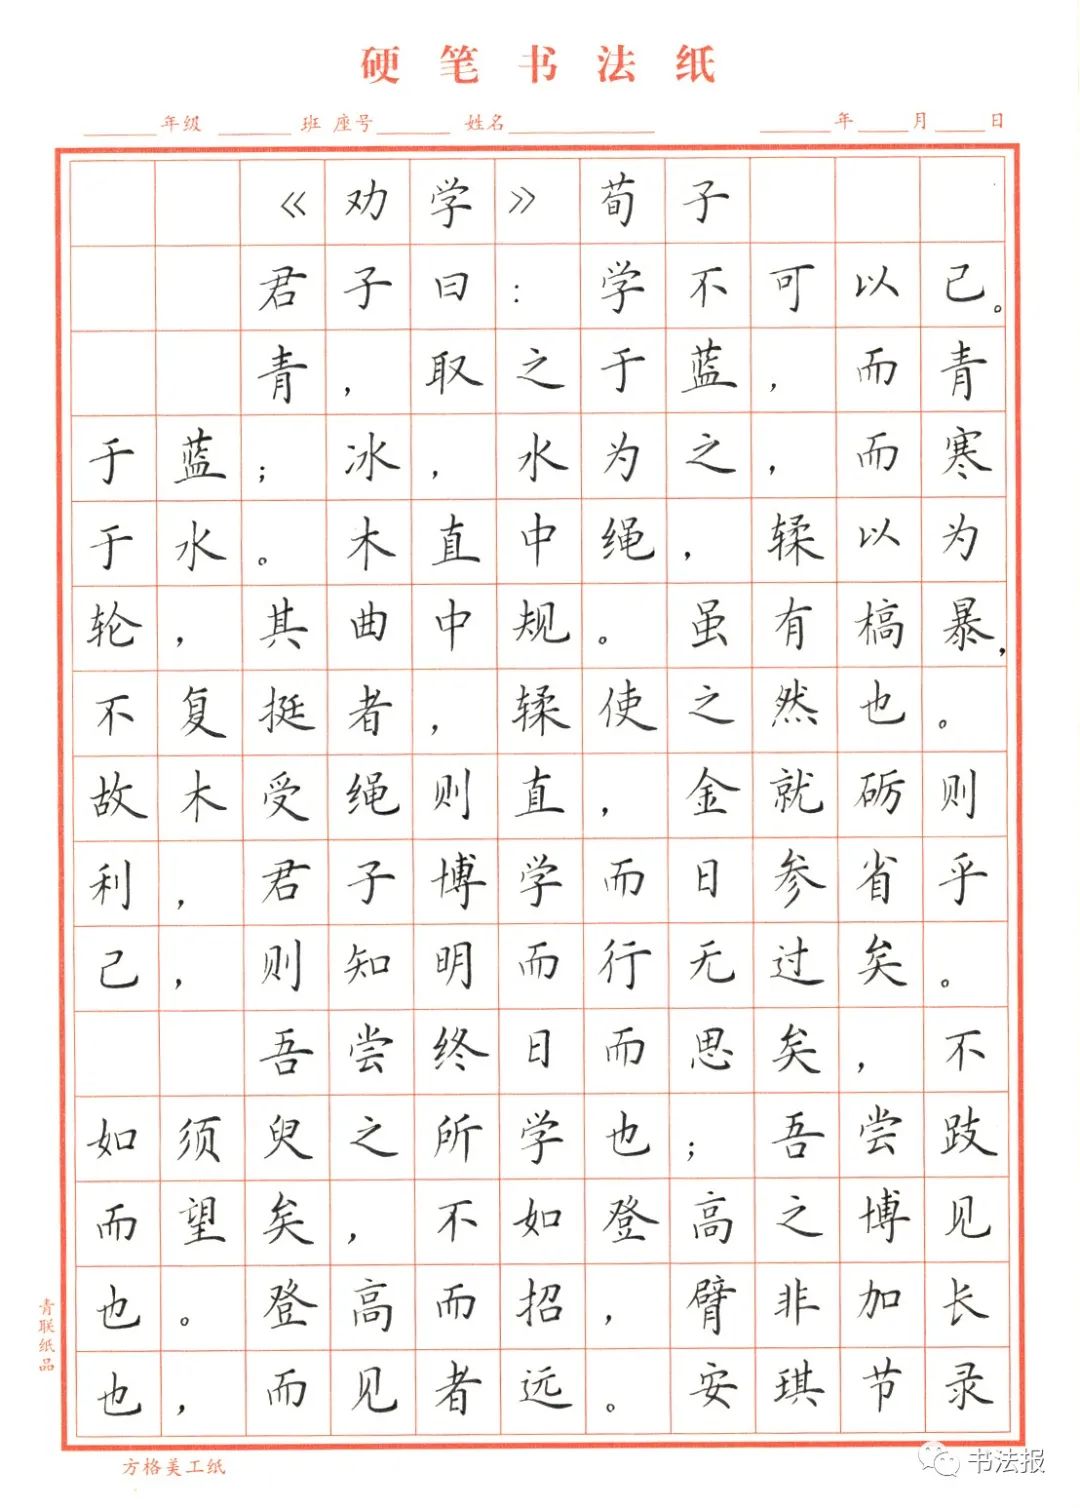 硬笔书法纸
年级 班 座号 姓名 年 月 日
《劝学》荀子
君子曰：学不可以已。
青，取之于蓝，而青
于蓝；冰，水为之，而寒
于水。木直中绳，𫐓以为
轮，其曲中规。虽有槁暴，
不复挺者，𫐓使之然也。
故木受绳则直，金就砺则
利，君子博学而日参省乎
己，则知明而行无过矣。
吾尝终日而思矣，不
如须臾之所学也；吾尝跂
而望矣，不如登高之博见
也。登高而招，臂非加长
也，而见者远。安琪节录
青联纸品
方格美工纸
书法报